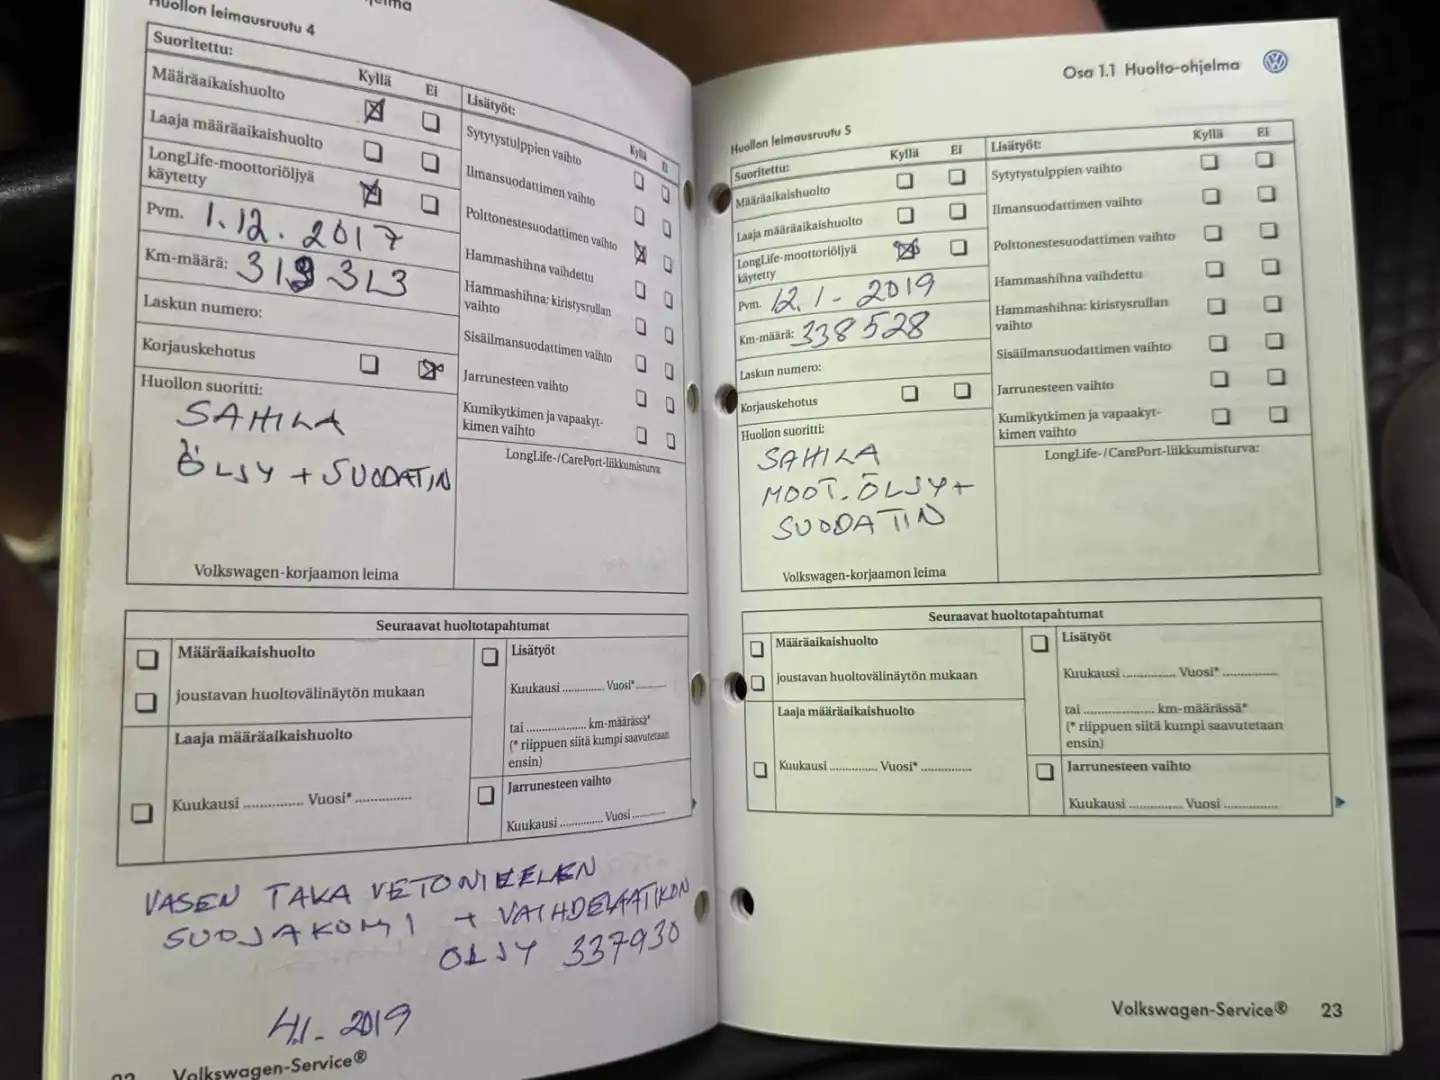 Huollon leimausruutu 4
Suoritettu:
Kyllä Ei
Määräaikaishuolto
Laaja määräaikaishuolto
LongLife-moottoriöljyä
käytetty
Pvm. 1.12.2017
Km-määrä: 319 313
Laskun numero:
Korjauskehotus
Huollon suoritti:
SAHILA
ÖLJY + SUODATIN
Volkswagen-korjaamon leima
Lisätyöt:
Kyllä Ei
Sytytystulppien vaihto
Ilmansuodattimen vaihto
Polttonestesuodattimen vaihto
Hammashihna vaihdettu
Hammashihna: kiristysrullan
vaihto
Sisäilmansuodattimen vaihto
Jarrunesteen vaihto
Kumikytkimen ja vapaakyt-
kimen vaihto
LongLife-/CarePort-liikkumisturva:
Seuraavat huoltotapahtumat
Määräaikaishuolto
joustavan huoltovälinäytön mukaan
Laaja määräaikaishuolto
Kuukausi ............... Vuosi* ..............
Lisätyöt
Kuukausi ............. Vuosi* .........
tai .................. km-määrässä*
(* riippuen siitä kumpi saavutetaan
ensin)
Jarrunesteen vaihto
Kuukausi ............. Vuosi ..........
VASEN TAKA VETONIVELEN
SUOJAKUMI + VAIHDELAATIKON
ÖLJY 337930
4.1.2019
Volkswagen-Service®
Osa 1.1 Huolto-ohjelma
Huollon leimausruutu 5
Suoritettu:
Kyllä Ei
Määräaikaishuolto
Laaja määräaikaishuolto
LongLife-moottoriöljyä
käytetty
Pvm. 12.1-2019
Km-määrä: 338 528
Laskun numero:
Korjauskehotus
Huollon suoritti:
SAHILA
MOOT. ÖLJY+
SUODATIN
Volkswagen-korjaamon leima
Lisätyöt:
Kyllä Ei
Sytytystulppien vaihto
Ilmansuodattimen vaihto
Polttonestesuodattimen vaihto
Hammashihna vaihdettu
Hammashihna: kiristysrullan
vaihto
Sisäilmansuodattimen vaihto
Jarrunesteen vaihto
Kumikytkimen ja vapaakyt-
kimen vaihto
LongLife-/CarePort-liikkumisturva:
Seuraavat huoltotapahtumat
Määräaikaishuolto
joustavan huoltovälinäytön mukaan
Laaja määräaikaishuolto
Kuukausi ............. Vuosi* ..............
Lisätyöt
Kuukausi ............... Vuosi* ...............
tai ................... km-määrässä*
(* riippuen siitä kumpi saavutetaan
ensin)
Jarrunesteen vaihto
Kuukausi .............. Vuosi ...............
Volkswagen-Service® 23